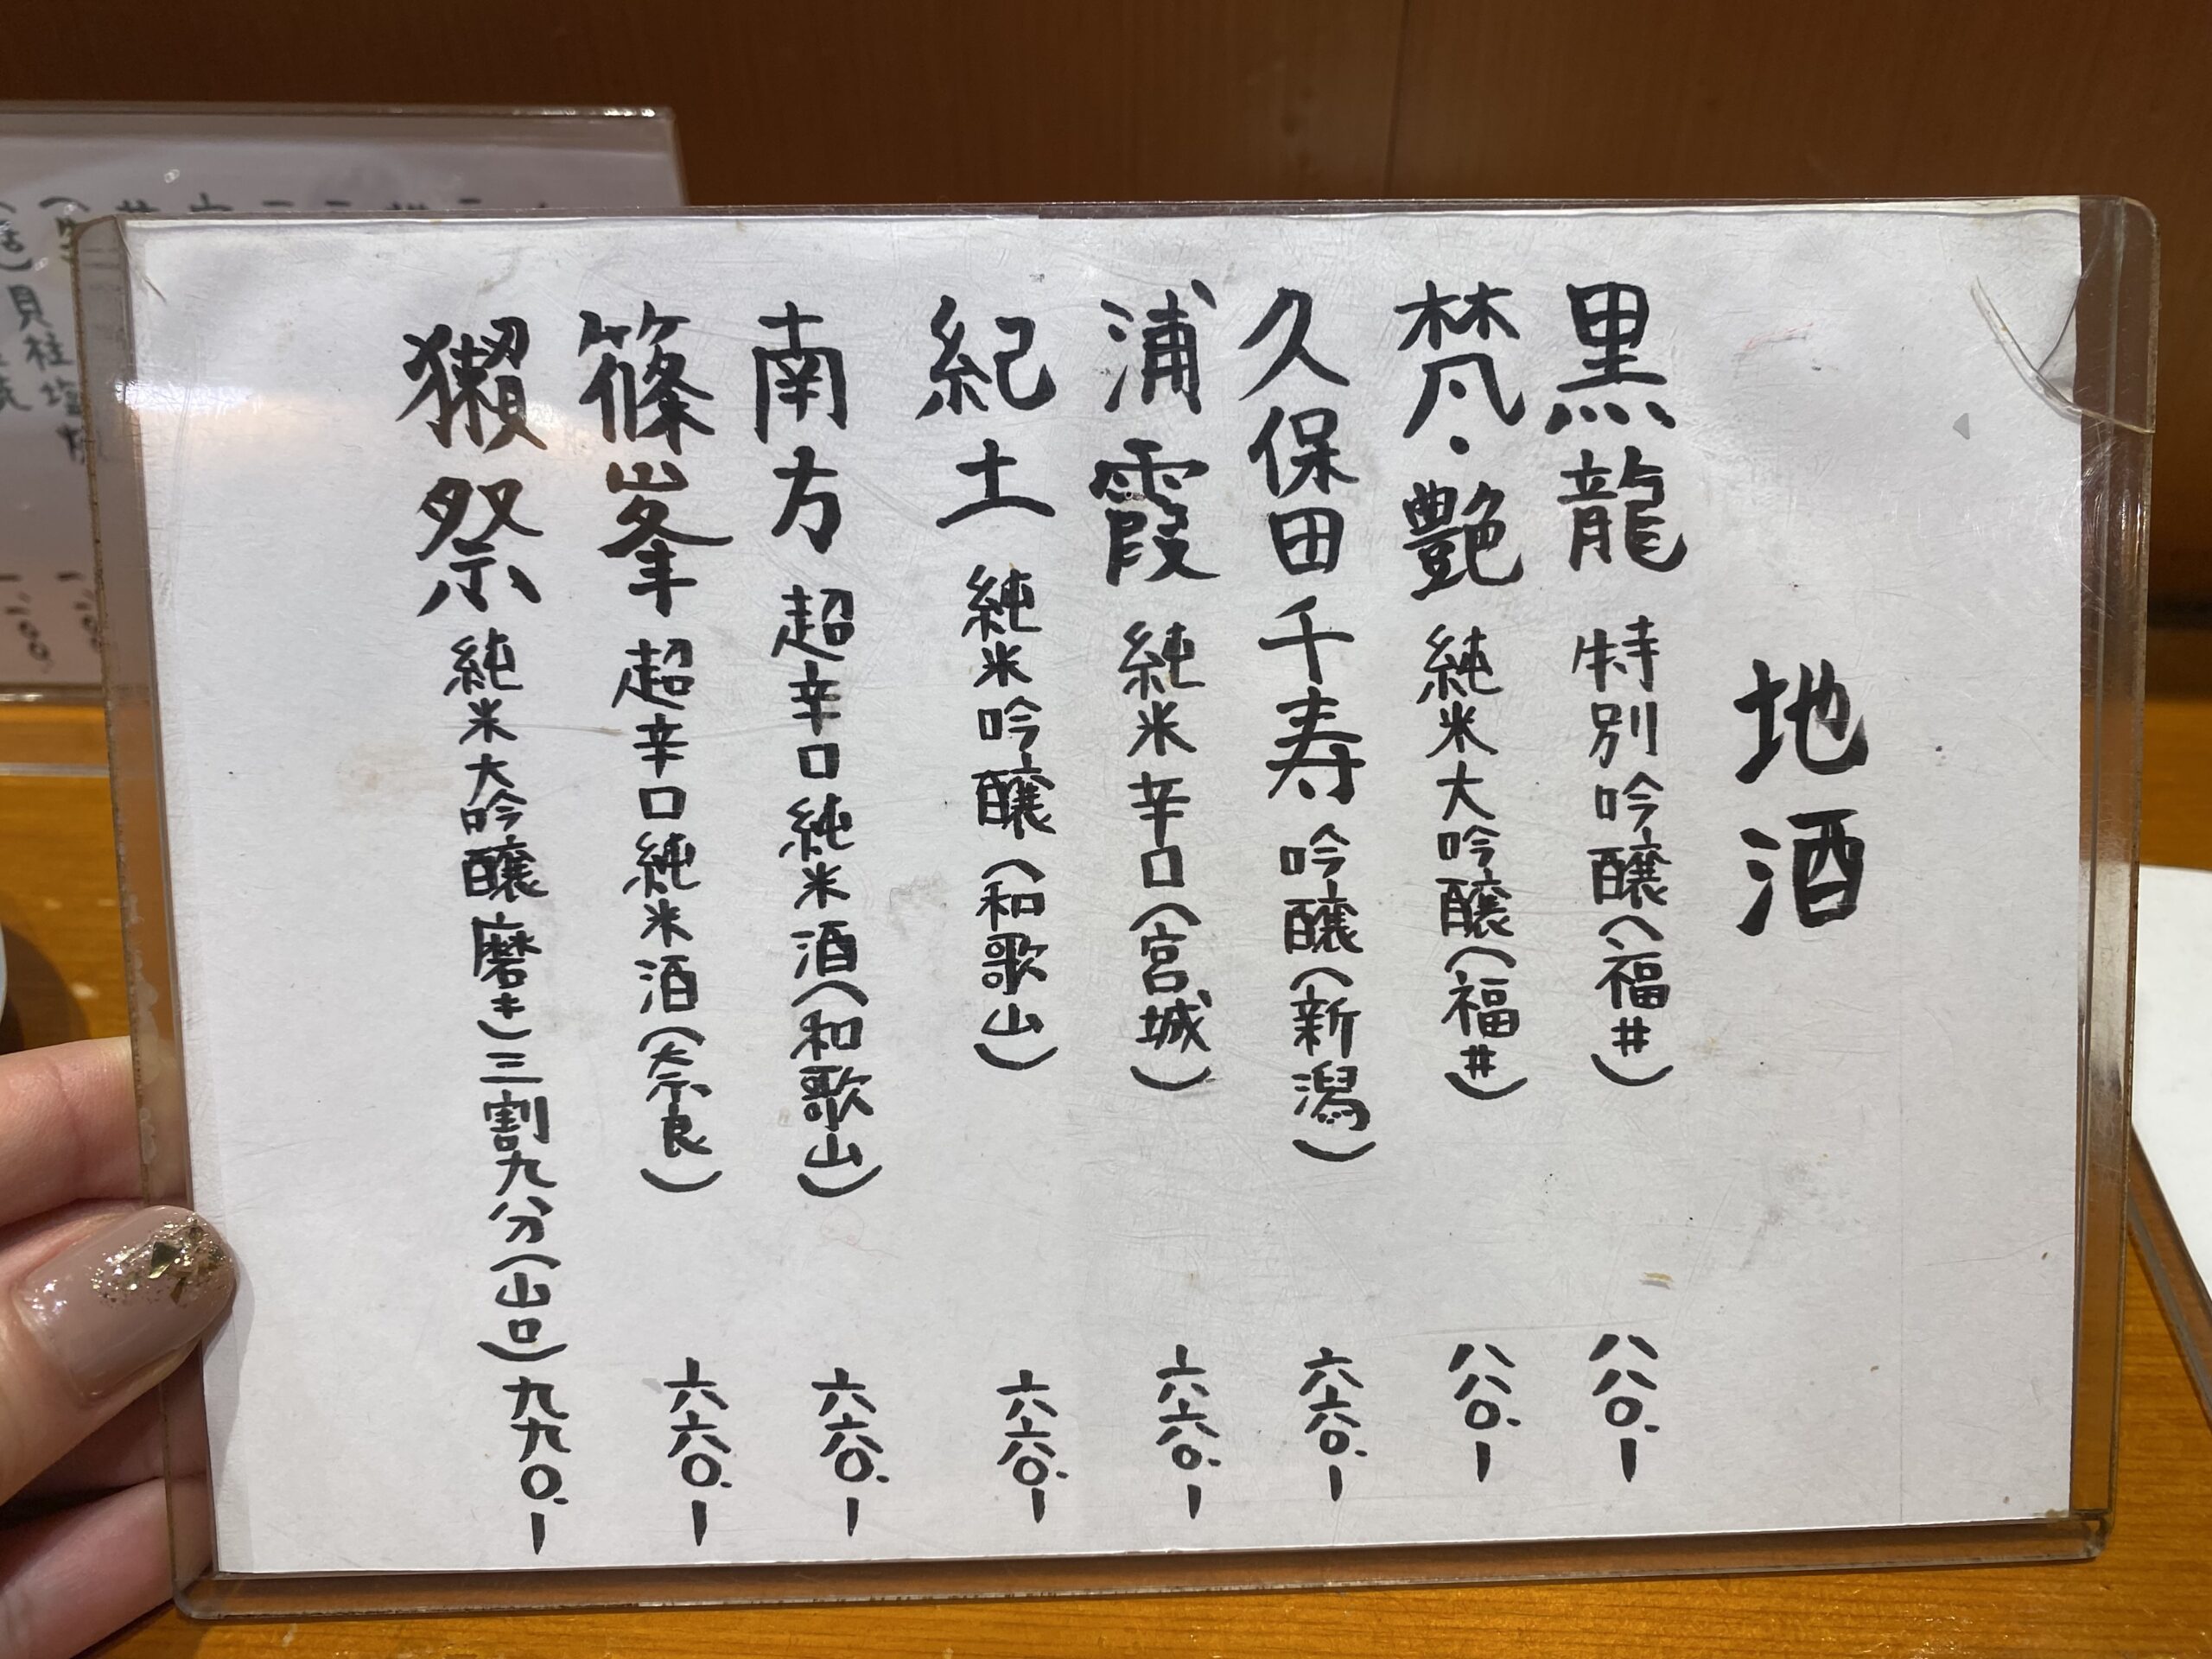 地酒
黒龍 特別吟醸(福井) 八八〇.ー
梵・艶 純米大吟醸(福井) 八八〇.ー
久保田千寿 吟醸(新潟) 六六〇.ー
浦霞 純米辛口(宮城) 六六〇.ー
紀土 純米吟醸(和歌山) 六六〇.ー
南方 超辛口純米酒(和歌山) 六六〇.ー
篠峯 超辛口純米酒(奈良) 六六〇.ー
獺祭 純米大吟醸磨き三割九分(山口) 九九〇.ー
貝柱塩